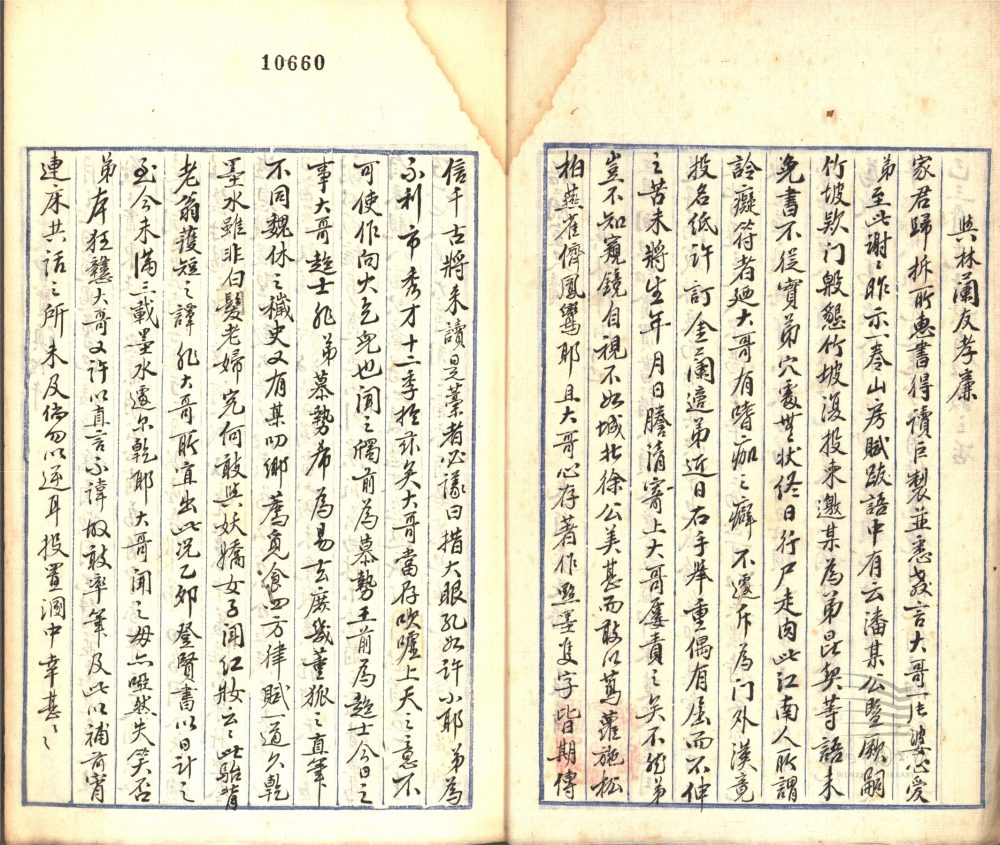 與林蘭友孝廉
家君歸拆所惠書得讀巨製並悉教言大哥一片婆心愛
弟至此謝謝昨示一奉山房賦跋語中有云潘某公暨厥嗣
竹坡欵門殷懇竹坡復投柬邀某為弟昆契等語未
免書不從實弟穴處無狀終日行尸走肉此江南人所謂
詅癡符者廼大哥有嗜痂之癖不遽斥為門外漢竟
投名紙許訂金蘭適弟近日右手舉重偶有屈而不伸
之苦未將生年月日謄清寄上大哥屢責之矣不然弟
豈不知窺鏡自視不如城北徐公美甚而敢以蔦蘿施松
柏燕雀儕鳳鸞耶且大哥心存著作點墨隻字皆期傳
10660
信千古將來讀是藁者必議曰措大眼孔如許小耶弟為
不利市秀才十二季於茲矣大哥當存吹噓上天之意不
可使作向火乞兒也聞之斶前為慕勢王前為趨士今日之
事大哥趨士非弟慕勢希為易去庶幾董狐之直筆
不同魏休之穢史又有某叨鄉薦覓食四方律賦一道久乾
墨水雖非白髮老婦究何敢與妖嬌女子鬪紅妝云云此駘背
老翁護短之譚非大哥所宜出此況乙卯登賢書以日計之
至今未滿三載墨水遽爾乾耶大哥聞之毋亦啞然失笑否
弟存狂戇大哥又許以直言不諱故敢率筆及此以補前宵
連床共話之所未及倘勿以逆耳投置溷中幸甚幸甚